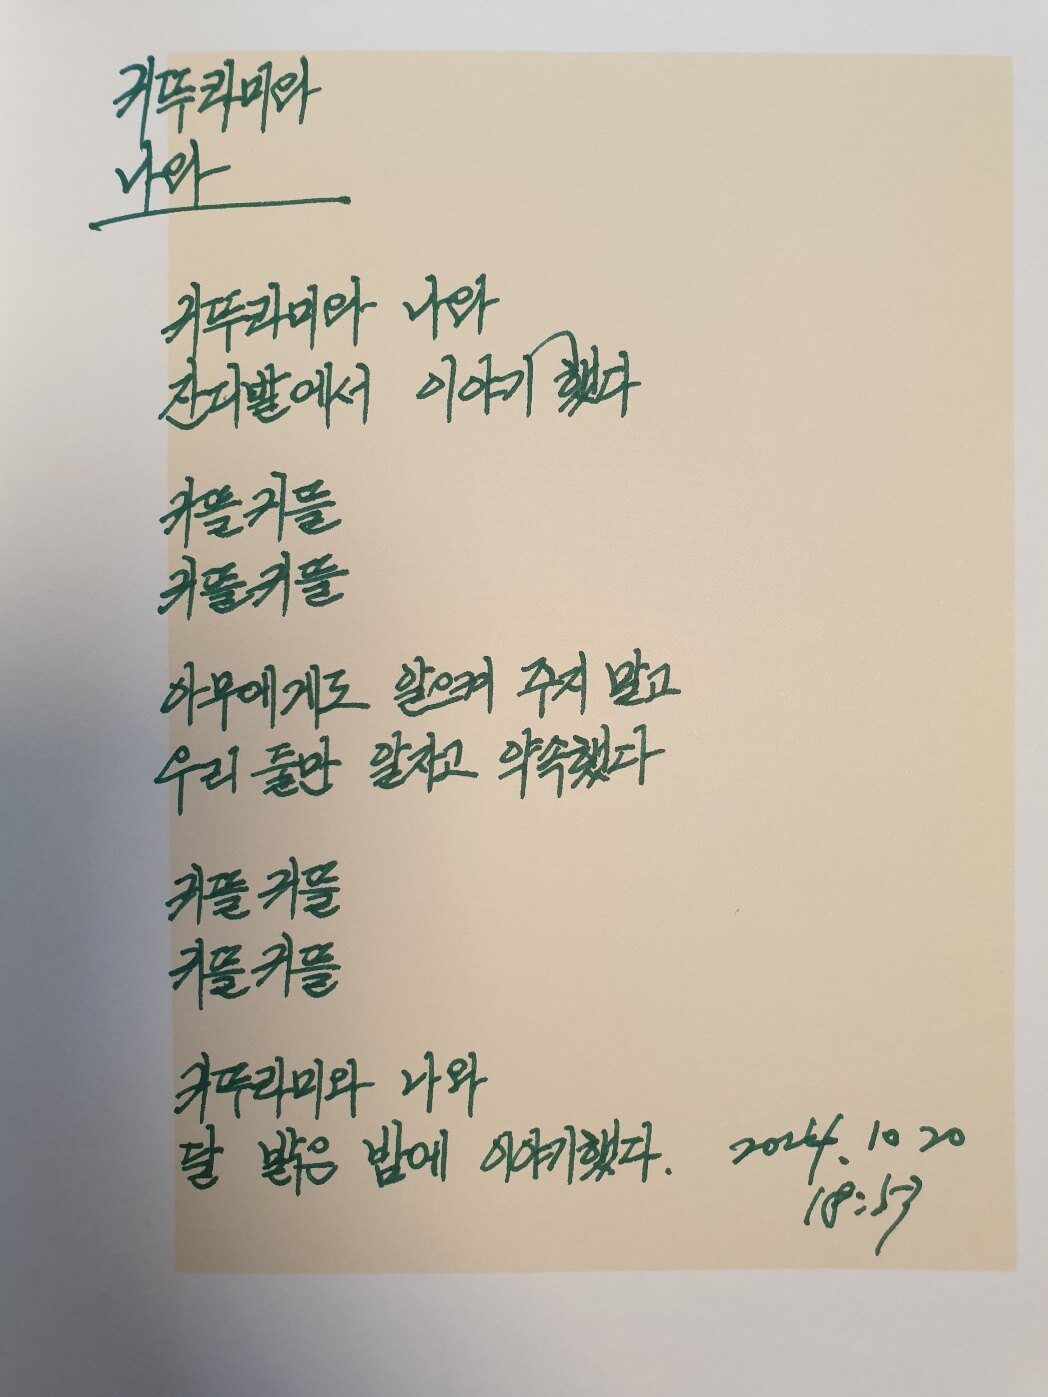 귀뚜라미와
나와
귀뚜라미와 나와
잔디밭에서 이야기했다
귀뜰귀뜰
귀뜰귀뜰
아무에게도 알으켜 주지 말고
우리 둘만 알자고 약속했다
귀뜰귀뜰
귀뜰귀뜰
귀뚜라미와 나와
달 밝은 밤에 이야기했다.
2024. 10 20
18:57